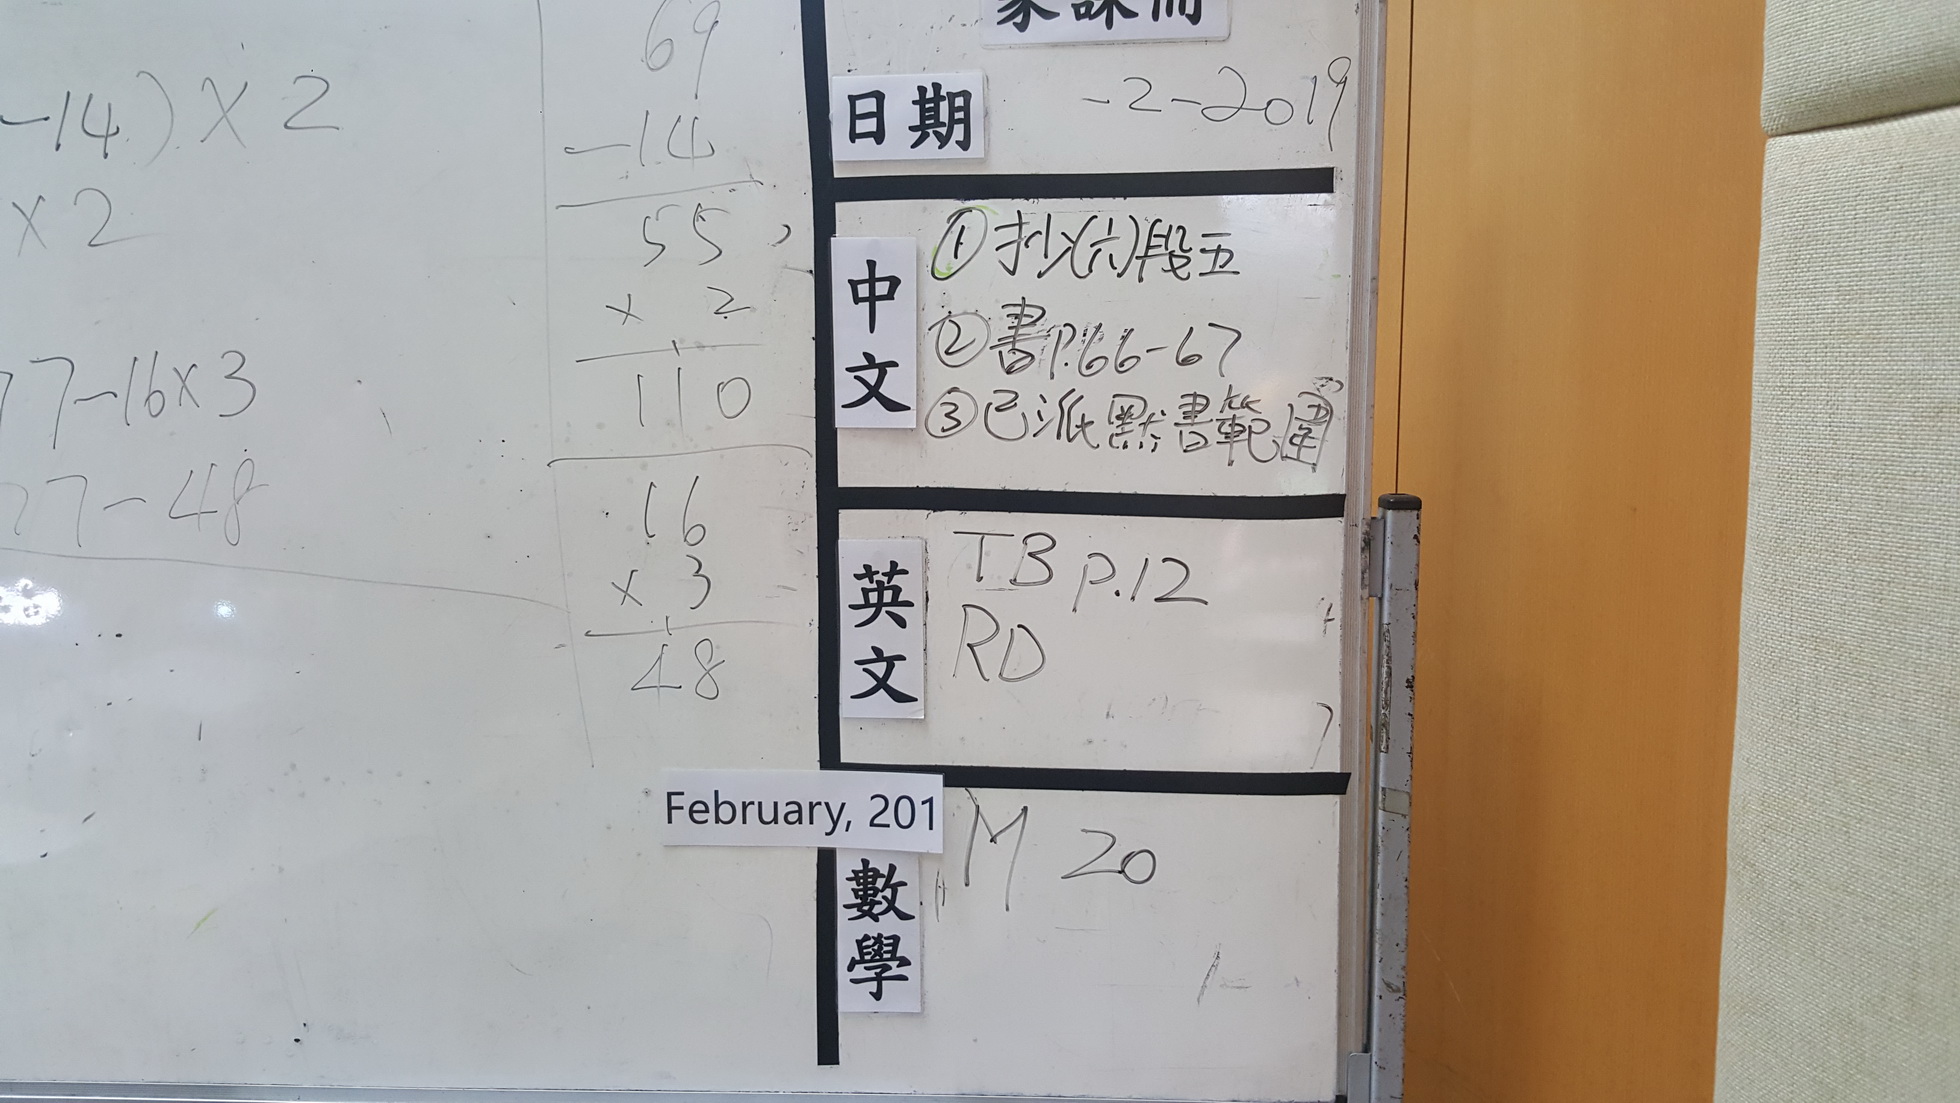 -14) × 2
× 2
77-16×3
77-48
69
-14
55
× 2
110
16
× 3
48
家課冊
日期
-2-2019
中文
①抄(六)段五
②書P.66-67
③已派默書範圍
英文
TB P.12
RD
February, 201
數學
M 20